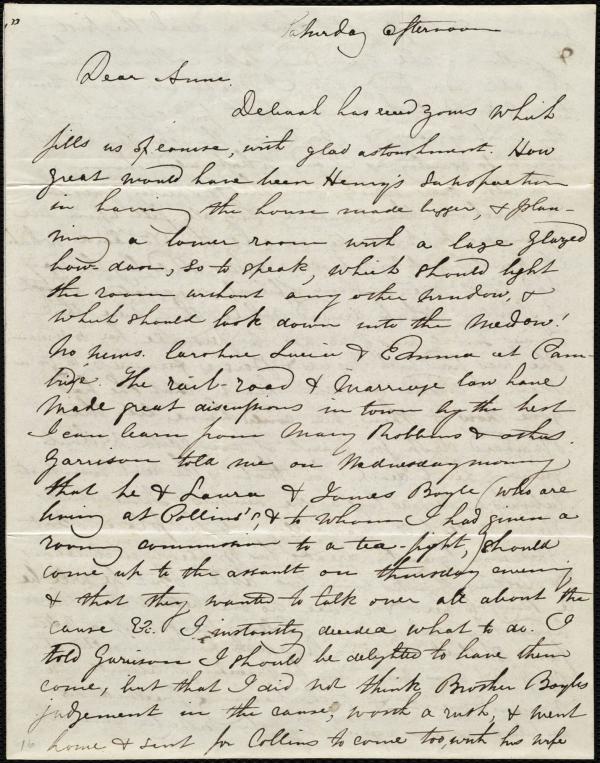 Saturday afternoon
Dear Anne.
Deborah has recd yours which
fills us of course, with glad astonishment. How
great would have been Henry's satisfaction
in having the house made bigger, & plan-
ning a lower room with a large glazed
how door, so to speak, which should light
the room without any other window, &
which should look down into the meadow!
No news. Caroline Lucia & Emma at Cam-
bridge. The rail-road & Marriage law have
made great discussions in town by the best
I can learn from Mary Robbins & others.
Garrison told me on Wednesday morning
that he & Laura & James Boyle (who are
living at Collins's, & to whom I had given a
roving commission to a tea-fight,) should
come up to the assault on Thursday evening
& that they wanted to talk over all about the
cause &c. I instantly decided what to do. I
told Garrison I should be delighted to have them
come, but that I did not think Brother Boyles
judgement in the cause, worth a rush, & went
home & sent for Collins to come too, with his wife
16